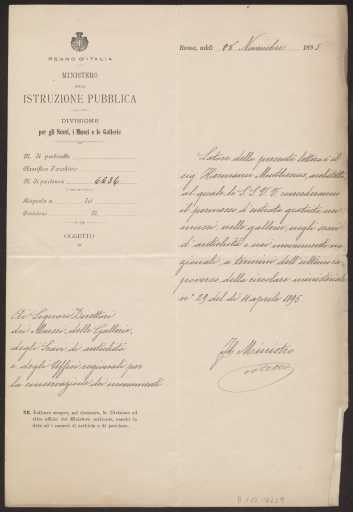 REGNO D'ITALIA
MINISTERO
DELLA
ISTRUZIONE PUBBLICA
DIVISIONE
per gli Scavi, i Musei e le Gallerie
N. di protocollo
N. di partenza 6636
Risposta a del
Divisione N.
OGGETTO
Roma, addì 06 Novembre 1895
Latore della presente lettera è il
sig. Hermann Muthesius, architetto,
al quale le S.S.V.V. concederanno
il permesso d'entrata gratuita nei
musei, nelle gallerie, negli scavi
d'antichità e nei monumenti na-
zionali, a termini dell'ultimo ca-
poverso della circolare ministeriale
n° 29 del dì 11 aprile 1895.
Il Ministro
Ai Signori Direttori
dei Musei, delle Gallerie,
degli Scavi di antichità
e degli Uffici regionali per
la conservazione dei monumenti
NB. Indicare sempre, nel rispondere, la Divisione od
altro ufficio del Ministero scrivente, nonchè la
data ed i numeri di archivio e di partenza.